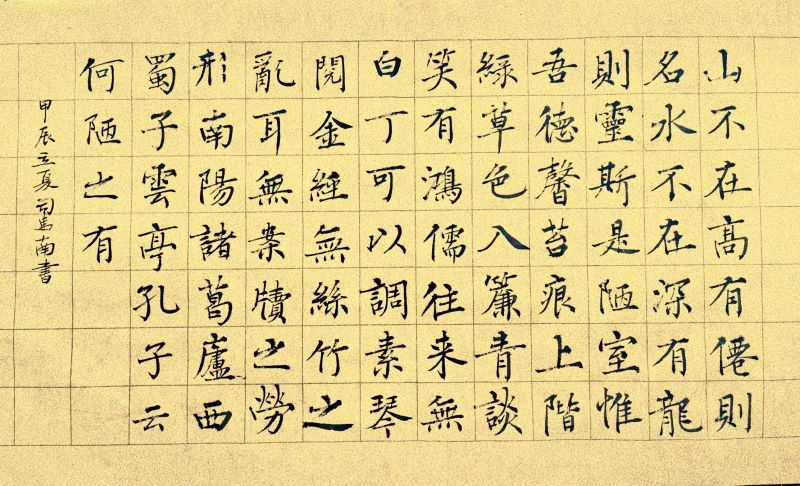 山不在高有僊則
名水不在深有龍
則靈斯是陋室惟
吾德馨苔痕上階
綠草色入簾青談
笑有鴻儒往来無
白丁可以調素琴
閱金經無絲竹之
亂耳無案牘之勞
形南陽諸葛廬西
蜀子雲亭孔子云
何陋之有
甲辰立夏司馬南書